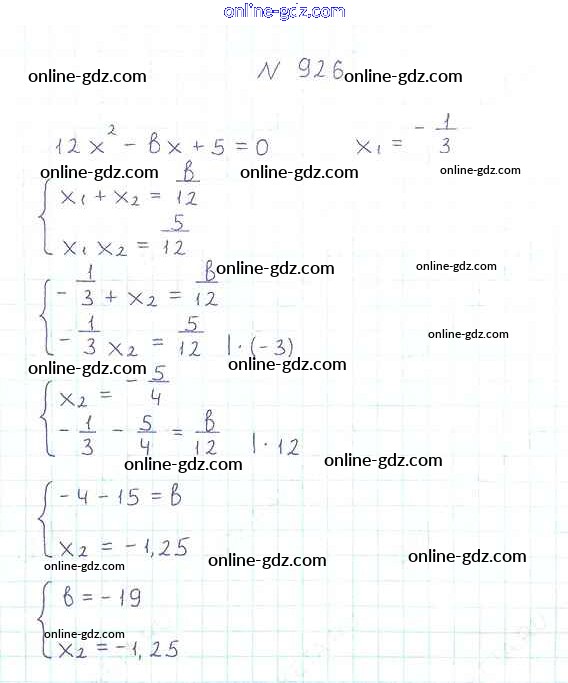 online-gdz.com
N 926
online-gdz.com online-gdz.com
12x² - вx + 5 = 0 x₁ = -1/3
online-gdz.com online-gdz.com online-gdz.com
x₁ + x₂ = в/12
x₁ x₂ = 5/12
online-gdz.com online-gdz.com
-1/3 + x₂ = в/12
online-gdz.com
-1/3 x₂ = 5/12 |·(-3)
online-gdz.com online-gdz.com
x₂ = -5/4
-1/3 - 5/4 = в/12 |·12
online-gdz.com online-gdz.com
-4 - 15 = в
x₂ = -1,25
online-gdz.com online-gdz.com online-gdz.com
в = -19
online-gdz.com
x₂ = -1,25